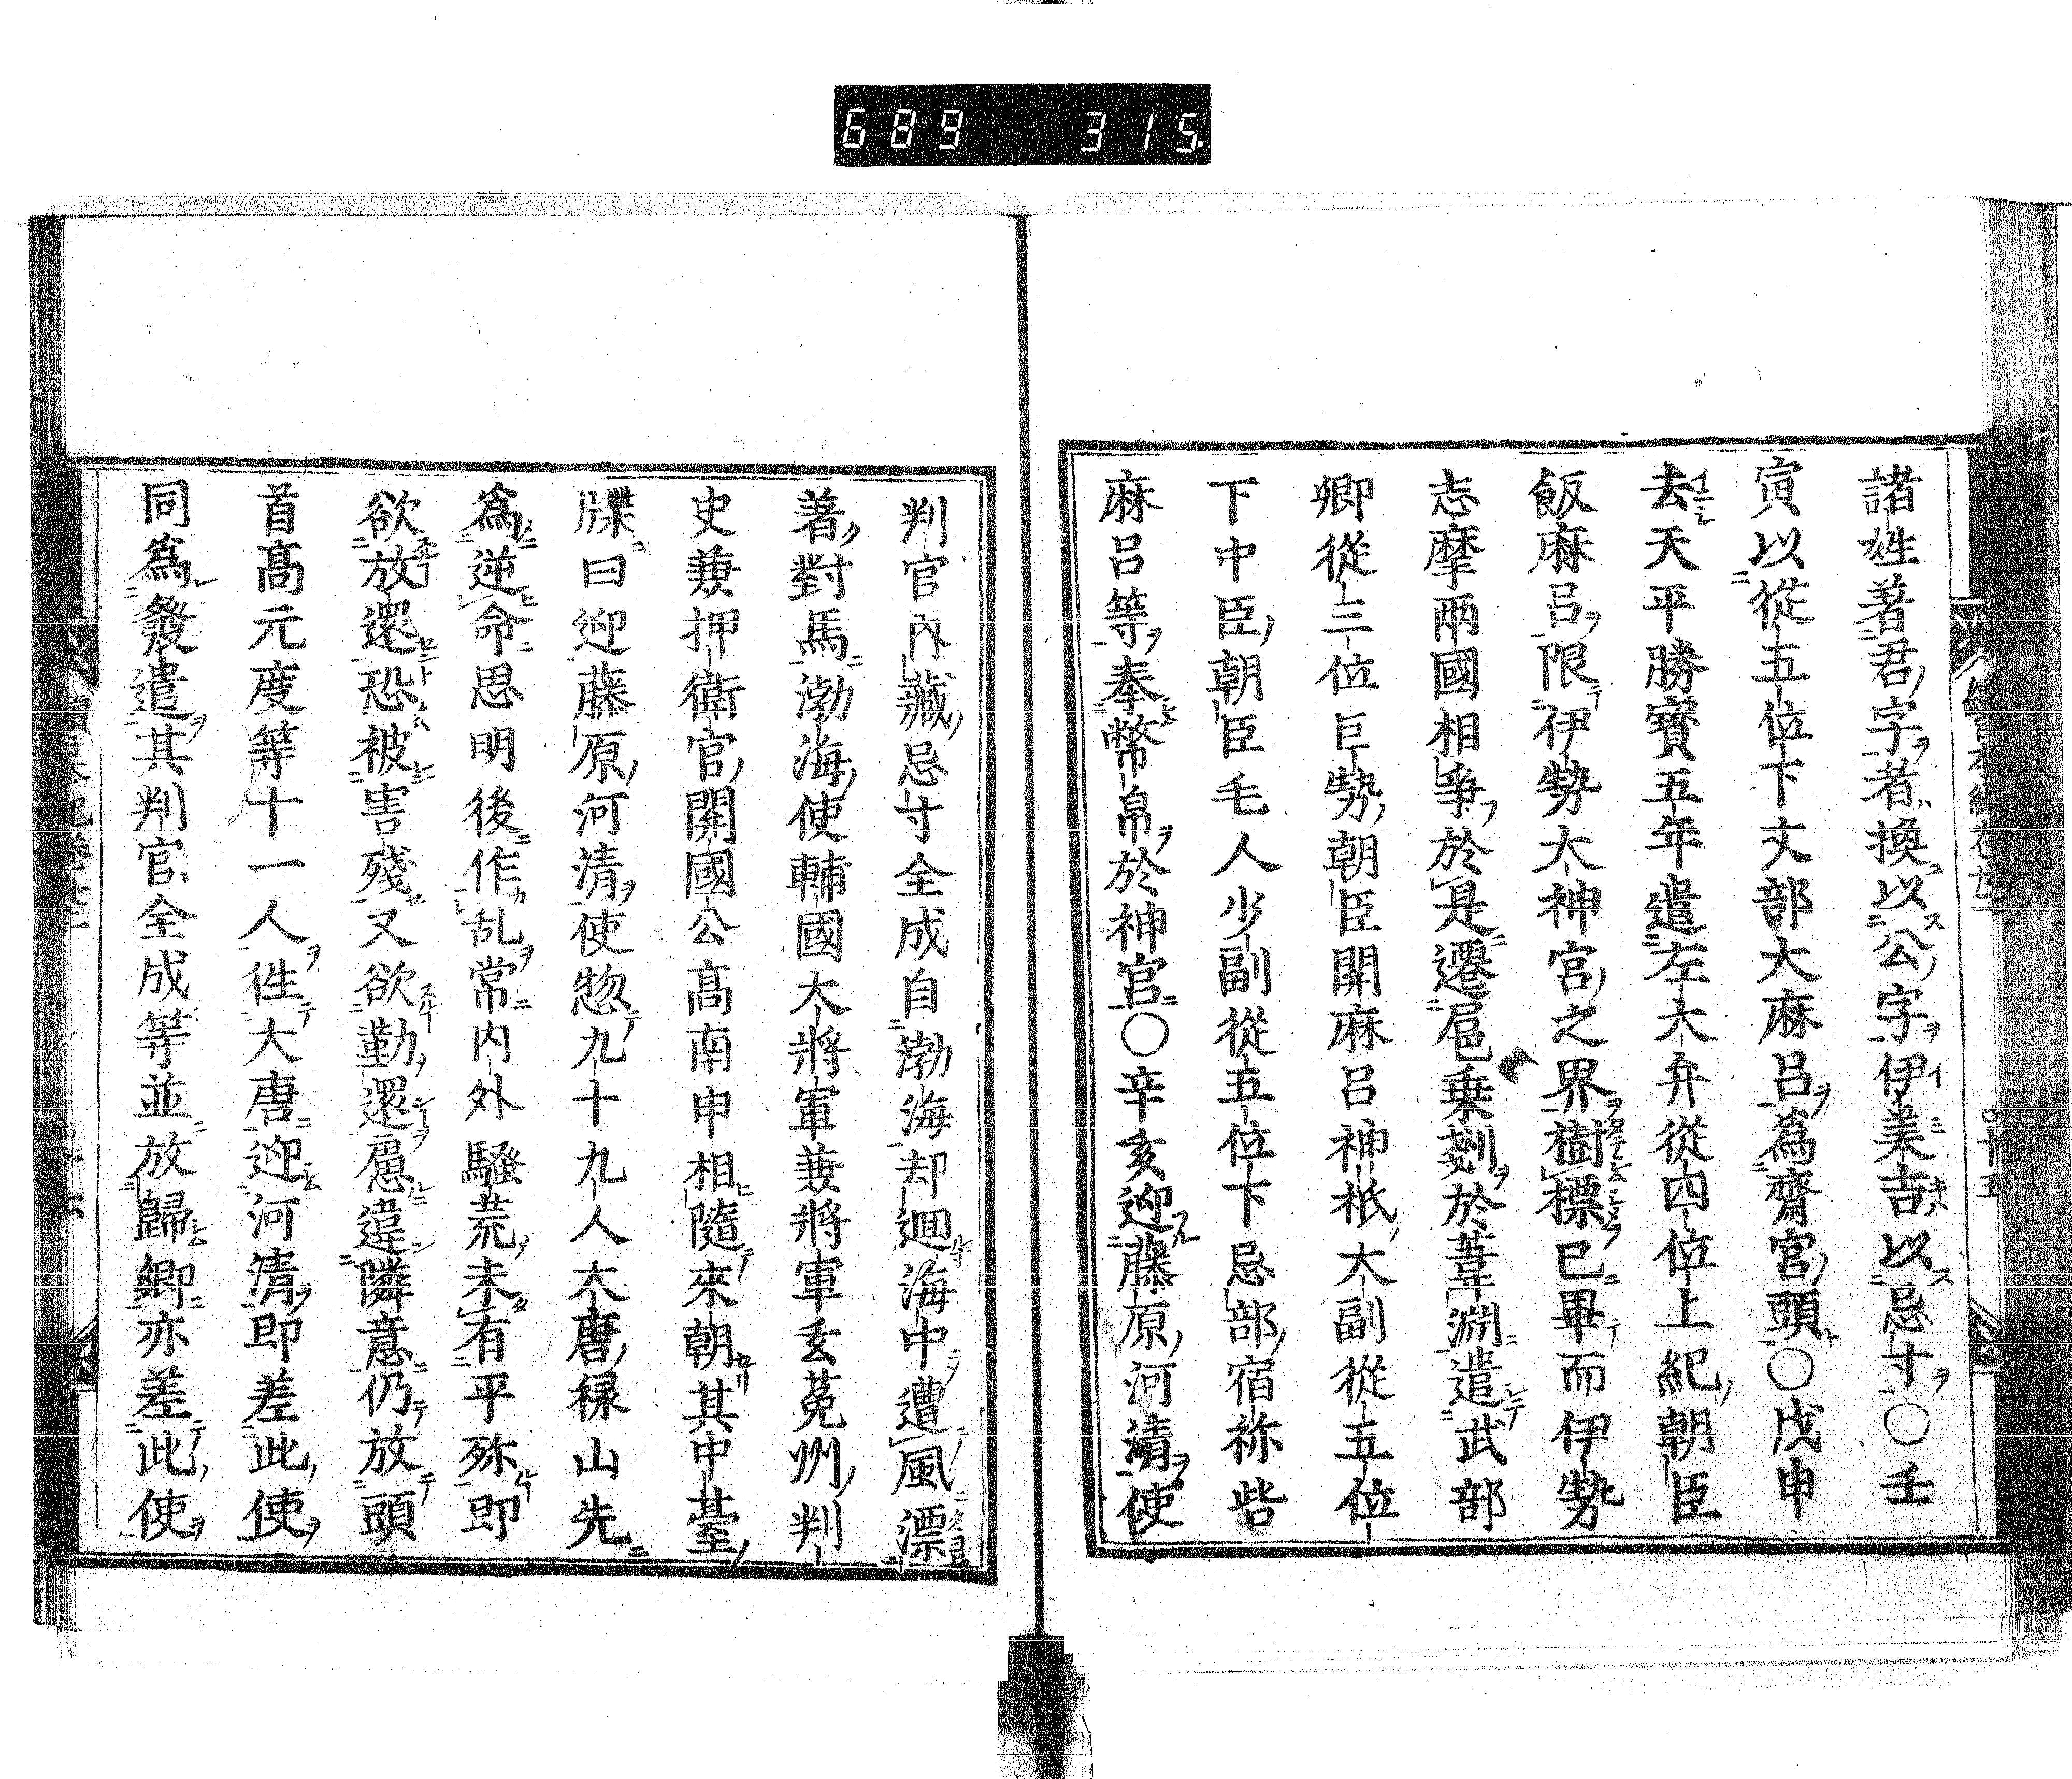 689 315
諸姓著君字者換以公字伊美吉以忌寸〇壬
寅以從五位下文部大麻呂爲齋宮頭〇戊申
去天平勝寶五年遣左大弁從四位上紀朝臣
飯麻呂限伊勢大神宮之界樹標已畢而伊勢
志摩兩國相爭於是遷尾乗剗於葦淵遣武部
卿從三位巨勢朝臣関麻呂神祇大副從五位
下中臣朝臣毛人少副從五位下忌部宿祢呰
麻呂等奉幣帛於神宮〇辛亥迎藤原河清使
判官內藏忌寸全成自渤海却廻海中遭風漂
著對馬渤海使輔國大將軍兼將軍玄菟州判
史兼押衛官開國公髙南申相隨來朝其中臺
牒曰迎藤原河清使惣九十九人大唐禄山先
爲逆命思明後作乱常内外騷荒未有平殄即
欲放還恐被害殘又欲勤還慮違隣意仍放頭
首髙元度等十一人徃大唐迎河清即差此使
同爲發遣其判官全成等並放歸卿亦差此使